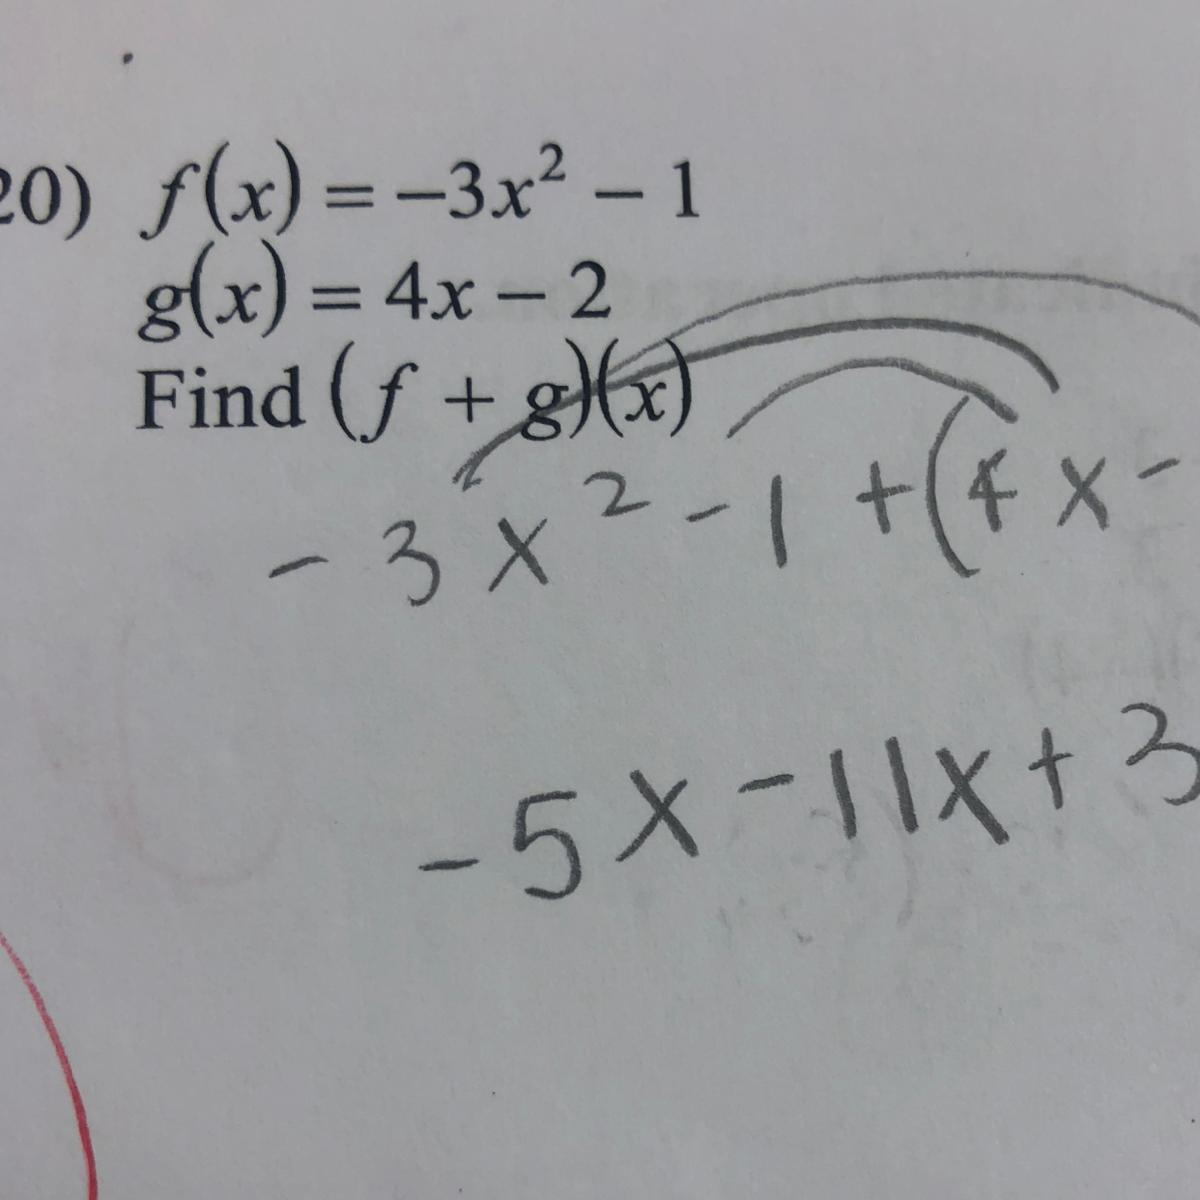 20) f(x) = −3x² − 1
g(x) = 4x − 2
Find (f + g)(x)
- 3x² - 1 + (4x -
- 5x - 11x + 3